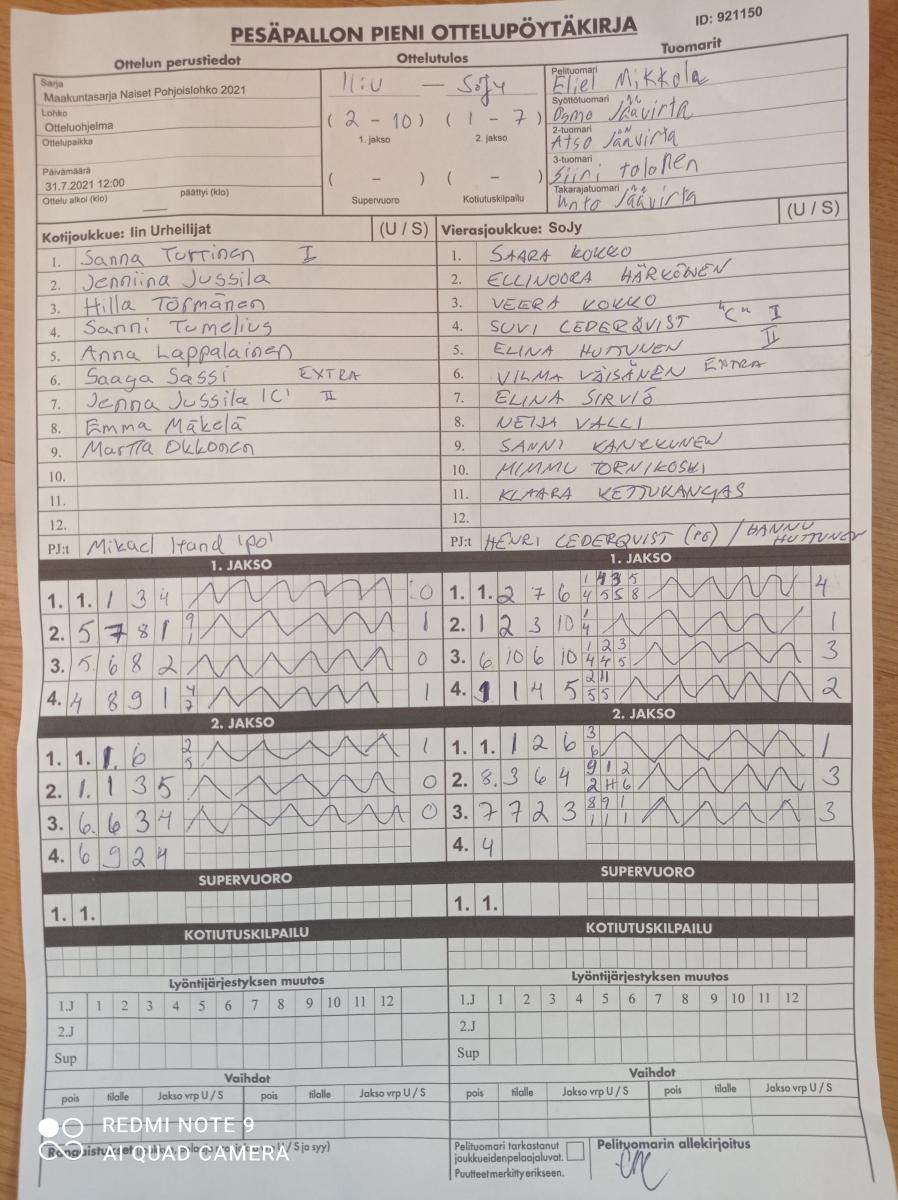 PESÄPALLON PIENI OTTELUPÖYTÄKIRJA
ID: 921150
Ottelun perustiedot
Ottelutulos
Tuomarit
Sarja
Maakuntasarja Naiset Pohjoislohko 2021
Lohko
Otteluohjelma
Ottelupaikka
Päivämäärä
31.7.2021 12:00
Ottelu alkoi (klo) päättyi (klo)
II:U — SoJy
( 2 - 10 ) ( 1 - 7 )
1. jakso 2. jakso
( - ) ( - )
Supervuoro Kotiutuskilpailu
Pelituomari
Eliel Mikkola
Syöttötuomari
Osmo Jäävirta
2-tuomari
Atso Jäävirta
3-tuomari
Siiri Tolonen
Takarajatuomari
Unto Jäävirta
Kotijoukkue: Iin Urheilijat (U / S)
1. Sanna Turtinen I
2. Jenniina Jussila
3. Hilla Törmänen
4. Sanni Tumelius
5. Anna Lappalainen
6. Saaga Sassi EXTRA
7. Jenna Jussila (C) II
8. Emma Mäkelä
9. Martta Okkonen
10.
11.
12.
PJ:t Mikael Hand 'po'
Vierasjoukkue: SoJy (U / S)
1. SAARA KOKKO
2. ELLINOORA HÄRKÖNEN
3. VEERA KOKKO
4. SUVI CEDERQVIST "C" I
5. ELINA HUTTUNEN II
6. VILMA VÄISÄNEN EXTRA
7. ELINA SIRVIÖ
8. NEIJA VALLI
9. SANNI KANKKUNEN
10. MIMMU TORNIKOSKI
11. KLAARA KETTUKANGAS
12.
PJ:t HENRI CEDERQVIST (PE) / HANNU HUTTUNEN
1. JAKSO
1. 1. 1 3 4 0
2. 5 7 8 1 9 1 1
3. 5. 6 8 2 0
4. 4 8 9 1 4 7 1
2. JAKSO
1. 1. 1. 6 2 5 1
2. 1. 1 3 5 0
3. 6. 6 3 4 0
4. 6 9 2 4
SUPERVUORO
1. 1.
KOTIUTUSKILPAILU
1. JAKSO
1. 1. 2 7 6 1 4 3 5 4
4 5 5 8
2. 1 2 3 10 1 4 1
3. 6. 10 6 10 1 2 3 3
4 4 5
4. 1 1 4 5 2 11 2
5 5
2. JAKSO
1. 1. 1 2 6 3 6 1
2. 8. 3 6 4 9 1 2 3
2 H 6
3. 7 7 2 3 8 9 1 3
1 1 1
4. 4
SUPERVUORO
1. 1.
KOTIUTUSKILPAILU
Lyöntijärjestyksen muutos
1.J 1 2 3 4 5 6 7 8 9 10 11 12
2.J
Sup
Vaihdot
pois tilalle Jakso vrp U / S pois tilalle Jakso vrp U / S
Lyöntijärjestyksen muutos
1.J 1 2 3 4 5 6 7 8 9 10 11 12
2.J
Sup
Vaihdot
pois tilalle Jakso vrp U / S pois tilalle Jakso vrp U / S
REDMI NOTE 9
AI QUAD CAMERA
/ S ja syy)
Pelituomari tarkastanut
joukkueidenpelaajaluvat.
Puutteet merkitty erikseen.
Pelituomarin allekirjoitus